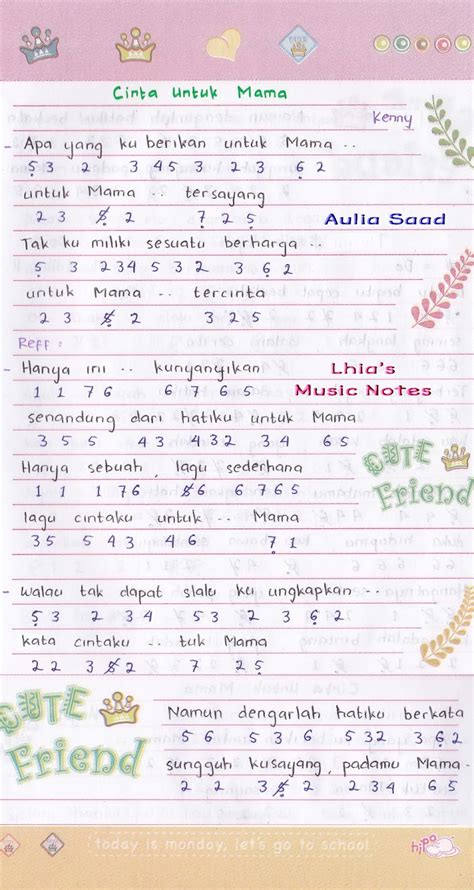 Cinta Untuk Mama
Kenny
- Apa yang ku berikan untuk Mama ..
5 3 2 3 4 5 3 2 3 6 2
untuk Mama .. tersayang
2 3 5 2 7 2 5
Aulia Saad
Tak ku miliki sesuatu berharga ..
5 3 2 3 4 5 3 2 3 6 2
untuk Mama .. tercinta
2 3 5 2 3 2 5
Reff :
- Hanya ini .. kunyanyikan
1 1 7 6 6 7 6 5
Lhia's
Music Notes
senandung dari hatiku untuk Mama
3 5 5 4 3 4 3 2 3 4 6 5
Hanya sebuah lagu sederhana
1 1 1 7 6 5 6 6 7 6 5
CUTE
Friend
lagu cintaku untuk .. Mama
3 5 5 4 3 4 6 7 1
- walau tak dapat slalu ku ungkapkan ..
5 3 2 3 4 5 3 2 3 6 2
kata cintaku .. tuk Mama
2 2 3 5 2 7 2 5
CUTE
Friend
Namun dengarlah hatiku berkata
5 6 5 3 6 5 3 2 3 6 2
sungguh kusayang, padamu Mama.
2 2 3 5 2 2 3 4 6 5
today is monday, let's go to school
hipo